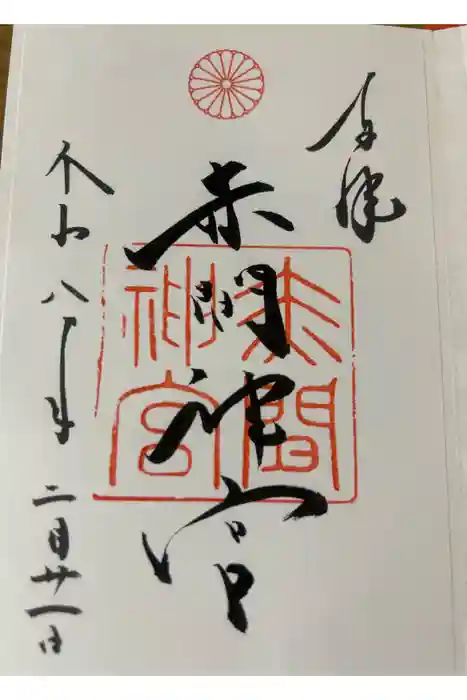 奉拝
赤間神宮
赤間神宮
令和八年二月廿一日